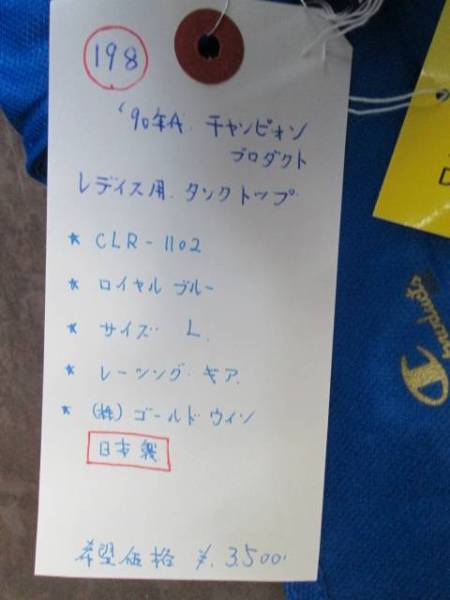 198
'90年代 チャンピオン
プロダクト
レディス用 タンクトップ
★ CLR-1102
★ ロイヤルブルー
★ サイズ L.
★ レーシング・ギア.
★ (株)ゴールドウイン
日本製
希望価格 ¥.3,500.
roducts